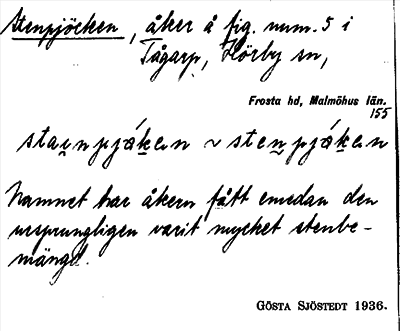 Stenpjöcken, åker å fig. num. 5 i
Tågarp, Hörby sn,
Frosta hd, Malmöhus län.
155
stau̯npjáken ~ stenpjáken
Namnet har åkern fått emedan den
ursprungligen varit mycket stenbe-
mängd.
GÖSTA SJÖSTEDT 1936.